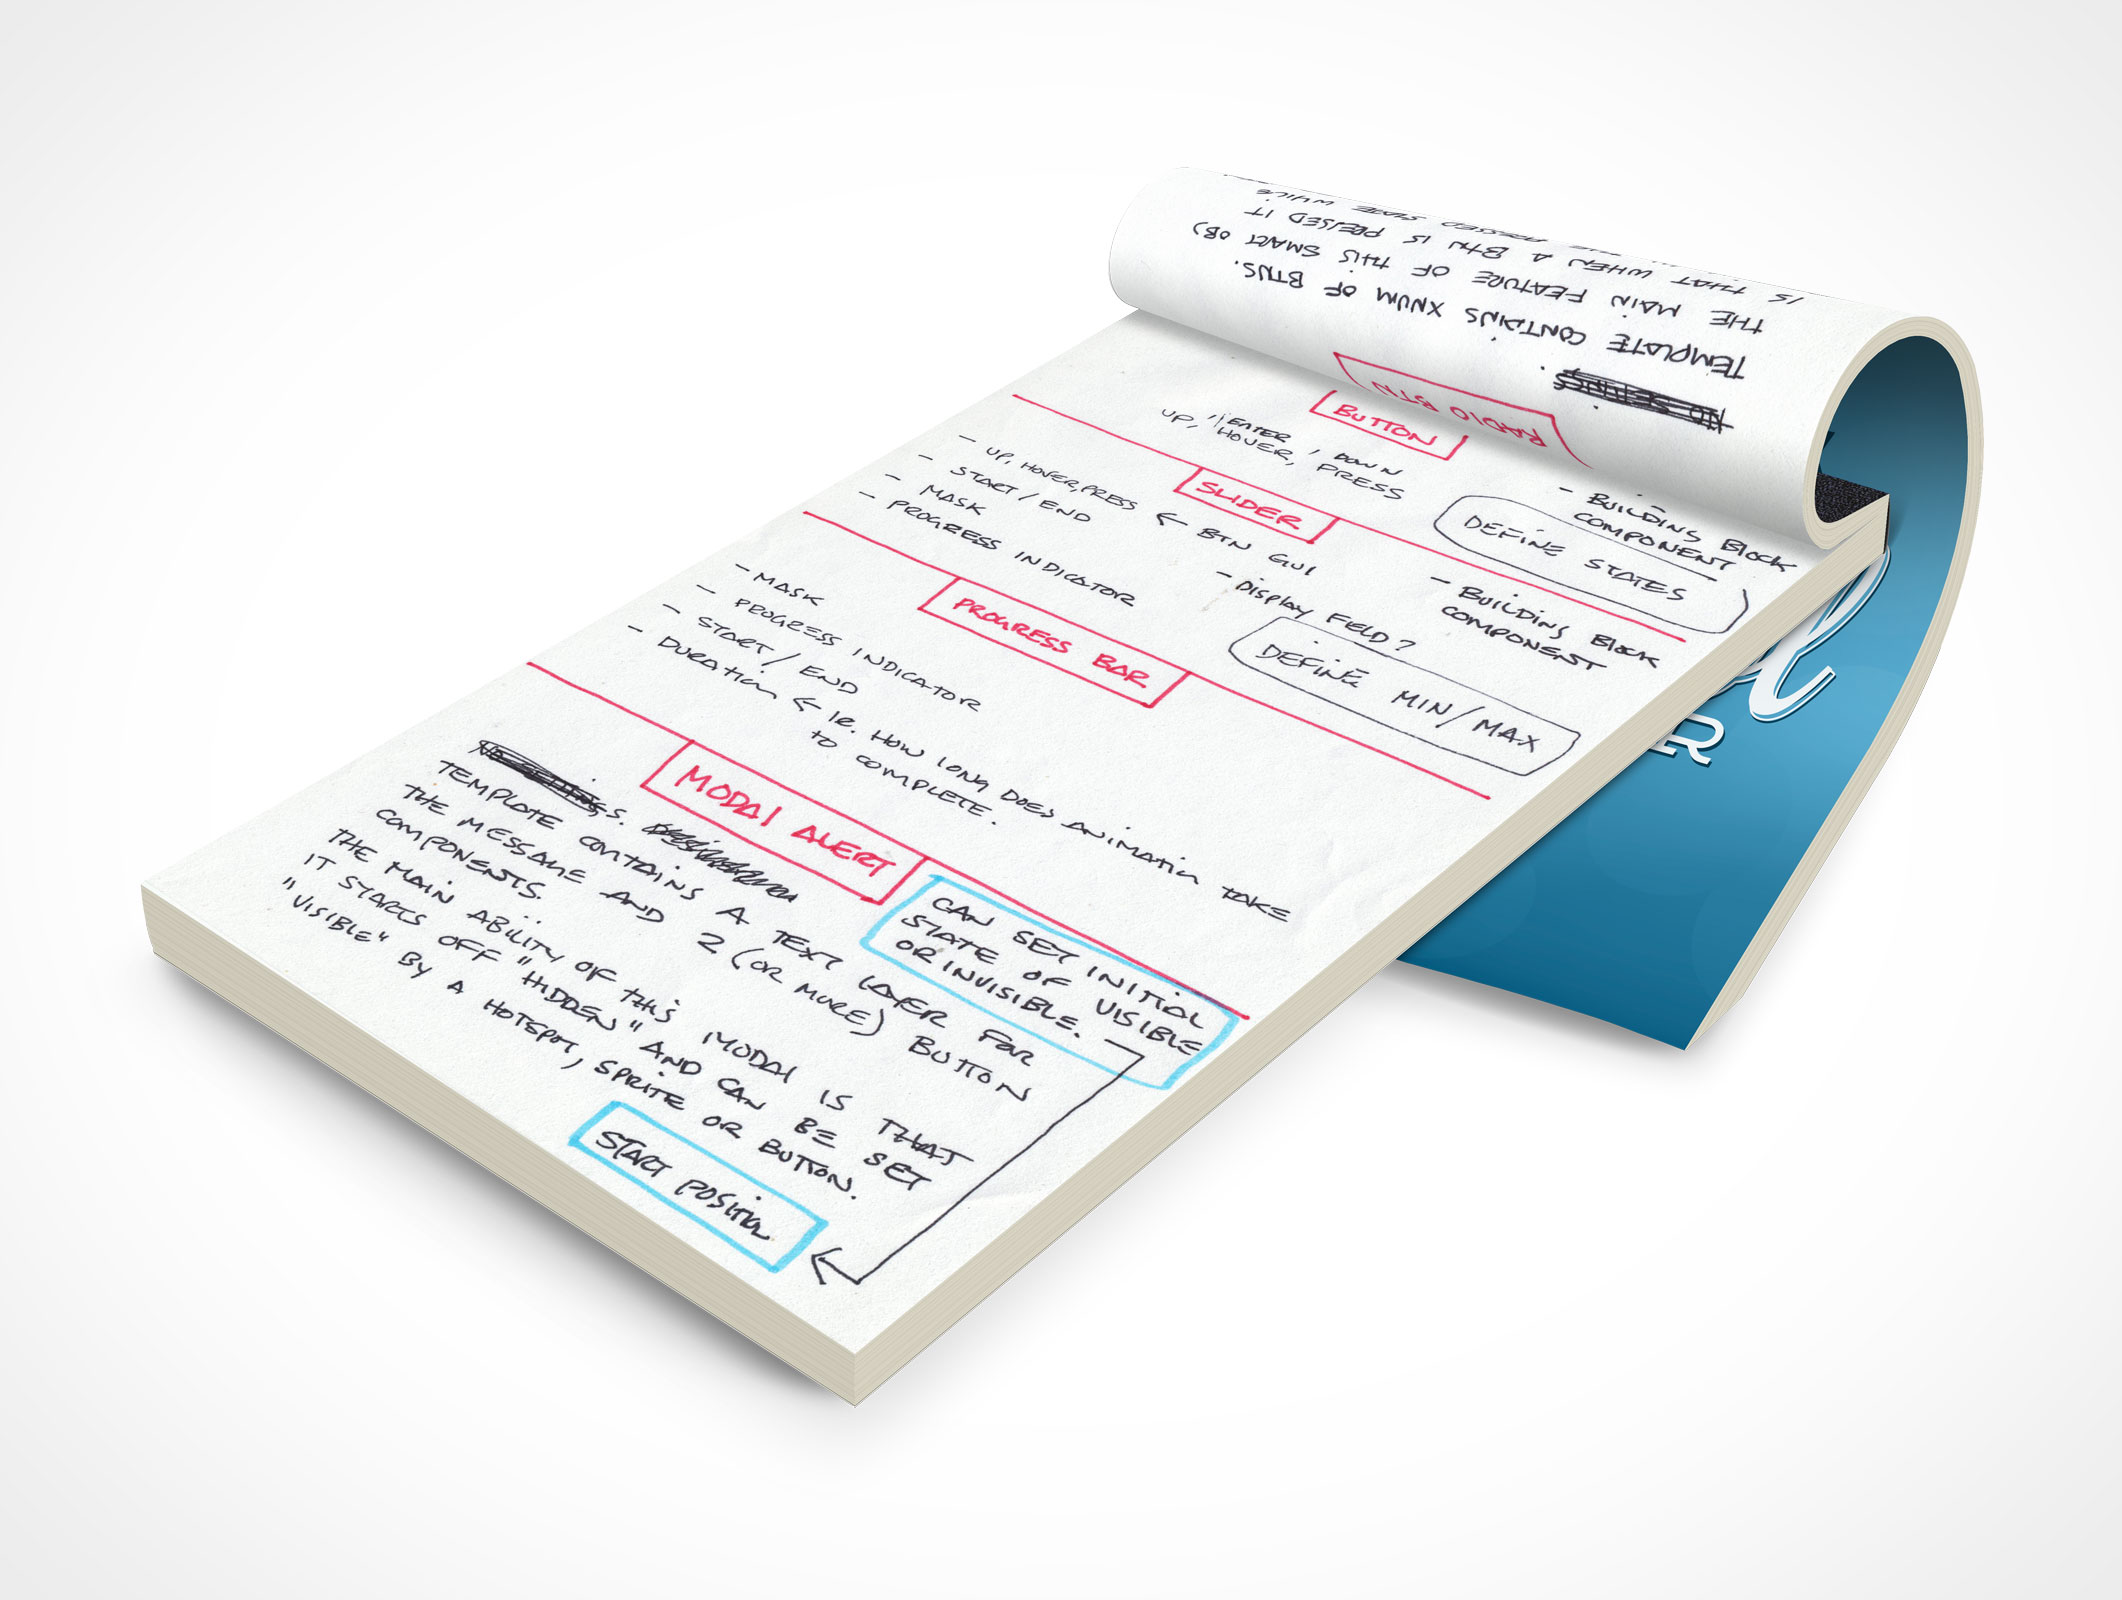 IS THAT WHEN A BTN IS PRESSED IT
THE MAIN FEATURE OF THIS SMART OBJ
TEMPLATE CONTAINS XNUM OF BTNS.
NO SETTINGS.
RADIO BTN
BUTTON
UP, ENTER, DOWN
HOVER, PRESS
- BUILDING BLOCK
COMPONENT
DEFINE STATES
SLIDER
- UP, HOVER, PRESS ← BTN GUI
- START / END
- MASK
- PROGRESS INDICATOR
- DISPLAY FIELD?
- BUILDING BLOCK
COMPONENT
DEFINE MIN/MAX
PROGRESS BAR
- MASK
- PROGRESS INDICATOR
- START / END
- DURATION ← IE. HOW LONG DOES ANIMATION TAKE
TO COMPLETE.
MODAL ALERT
TEMPLATE CONTAINS A TEXT LAYER FOR
THE MESSAGE AND 2 (OR MORE) BUTTON
COMPONENTS.
THE MAIN ABILITY OF THIS MODAL IS THAT
IT STARTS OFF "HIDDEN" AND CAN BE SET
"VISIBLE" BY A HOTSPOT, SPRITE OR BUTTON.
CAN SET INITIAL
STATE OF VISIBLE
OR INVISIBLE.
START POSITION
R